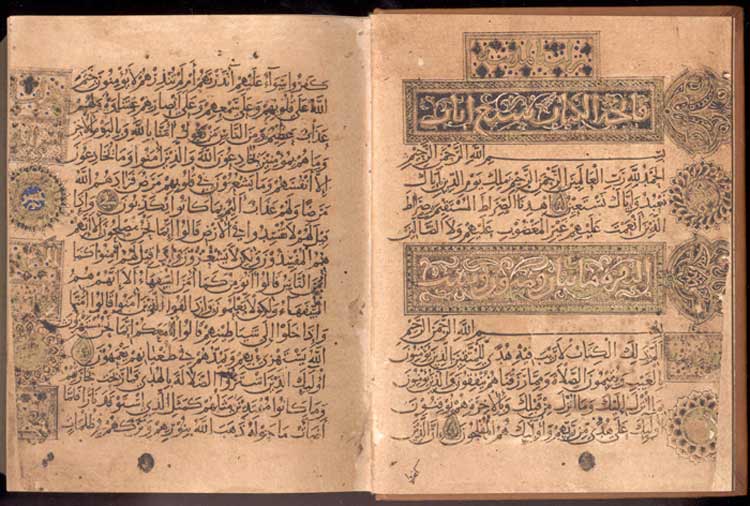 فاتحة الكتاب سبع ايات
بسم الله الرحمن الرحيم
الحمد لله رب العالمين الرحمن الرحيم ملك يوم الدين اياك
نعبد واياك نستعين اهدنا الصراط المستقيم صراط
الذين انعمت عليهم غير المغضوب عليهم ولا الضالين
البقرة مائتان وثمنون وست
بسم الله الرحمن الرحيم
الم ذلك الكتاب لا ريب فيه هدى للمتقين الذين يؤمنون
بالغيب ويقيمون الصلاة ومما رزقناهم ينفقون والذين يؤمنون
بما انزل اليك وما انزل من قبلك وبالاخرة هم يوقنون
اوليك على هدى من ربهم واوليك هم المفلحون ان الذين
كفروا سواء عليهم أنذرتهم أم لم تنذرهم لا يؤمنون ختم
الله على قلوبهم وعلى سمعهم وعلى أبصارهم غشاوة ولهم
عذاب عظيم ومن الناس من يقول آمنا بالله وباليوم الآخر
وما هم بمؤمنين يخادعون الله والذين آمنوا وما يخادعون
إلا أنفسهم وما يشعرون في قلوبهم مرض فزادهم الله
مرضا ولهم عذاب أليم بما كانوا يكذبون وإذا
قيل لهم لا تفسدوا في الأرض قالوا إنما نحن مصلحون ألا إنهم
هم المفسدون ولكن لا يشعرون وإذا قيل لهم آمنوا كما
آمن الناس قالوا أنؤمن كما آمن السفهاء ألا إنهم هم
السفهاء ولكن لا يعلمون وإذا لقوا الذين آمنوا قالوا آمنا
وإذا خلوا إلى شياطينهم قالوا إنا معكم إنما نحن مستهزئون
الله يستهزئ بهم ويمدهم في طغيانهم يعمهون
أوليك الذين اشتروا الضلالة بالهدى فما ربحت تجارتهم
وما كانوا مهتدين مثلهم كمثل الذي استوقد نارا فلما
أضاءت ما حوله ذهب الله بنورهم وتركهم في ظلمات